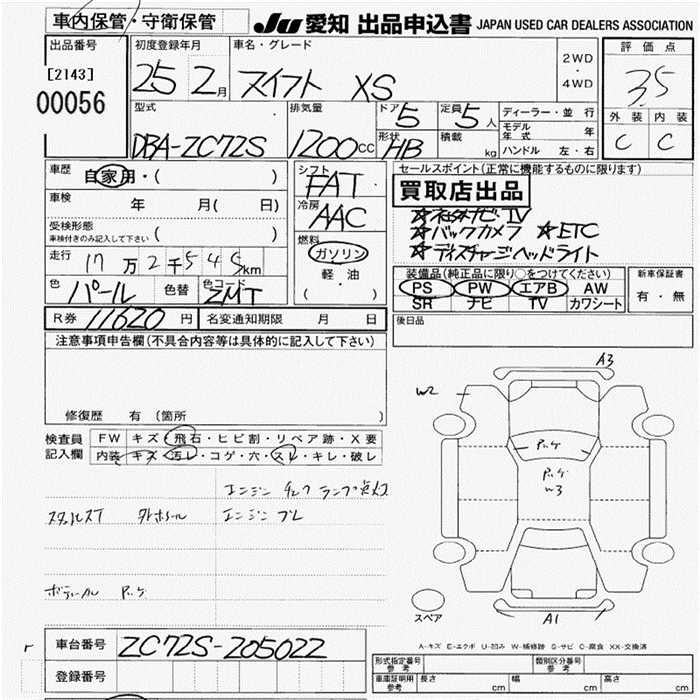 車内保管・守衛保管
JU 愛知 出品申込書 JAPAN USED CAR DEALERS ASSOCIATION
出品番号
[2143]
00056
初度登録年月
25 2月
車名・グレード
スイフト XS
2WD
・
4WD
評価点
3.5
外装 内装
C C
型式
DBA-ZC72S
排気量
1200CC
ドア
5
定員
5人
形状
HB
積載
kg
ディーラー・並行
モデル年式 年
ハンドル 左・右
車歴
自家用・( )
車検 年 月( 日)
受検形態
車検付きのみ記入して下さい ( )
走行
17万2千545km
色 パール 色替 色コード ZMT
シフト
FAT
冷房
AAC
燃料
ガソリン
・
軽油
( )
セールスポイント(正常に機能するものに限ります)
買取店出品
☆ナビTV
☆バックカメラ ☆ETC
☆ディスチャージヘッドライト
装備品(純正品に限り○をつけてください)
PS PW エアB AW
SR ナビ TV カワシート
新車保証書
有・無
R券 11620円
名変通知期限 月 日
後日品
注意事項申告欄(不具合内容等は具体的に記入して下さい)
修復歴 有 (箇所 )
検査員
記入欄
FW キズ・飛石・ヒビ割・リペア跡・X要
内装 キズ・汚レ・コゲ・穴・スレ・キレ・破レ
エンジン チェックランプ点灯
エンジン ブレ
A3
W2
W3
A1
スペア
A-キズ E-エクボ U-凹み W-補修跡 S-サビ C-腐食 XX-交換済
車台番号
ZC72S-205022
登録番号
形式指定番号
参考
類別区分番号
参考
車庫証明用
参考
長さ cm 幅 cm 高さ cm